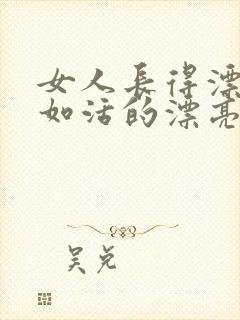 女人長得漂
如活的漂亮
吴兑